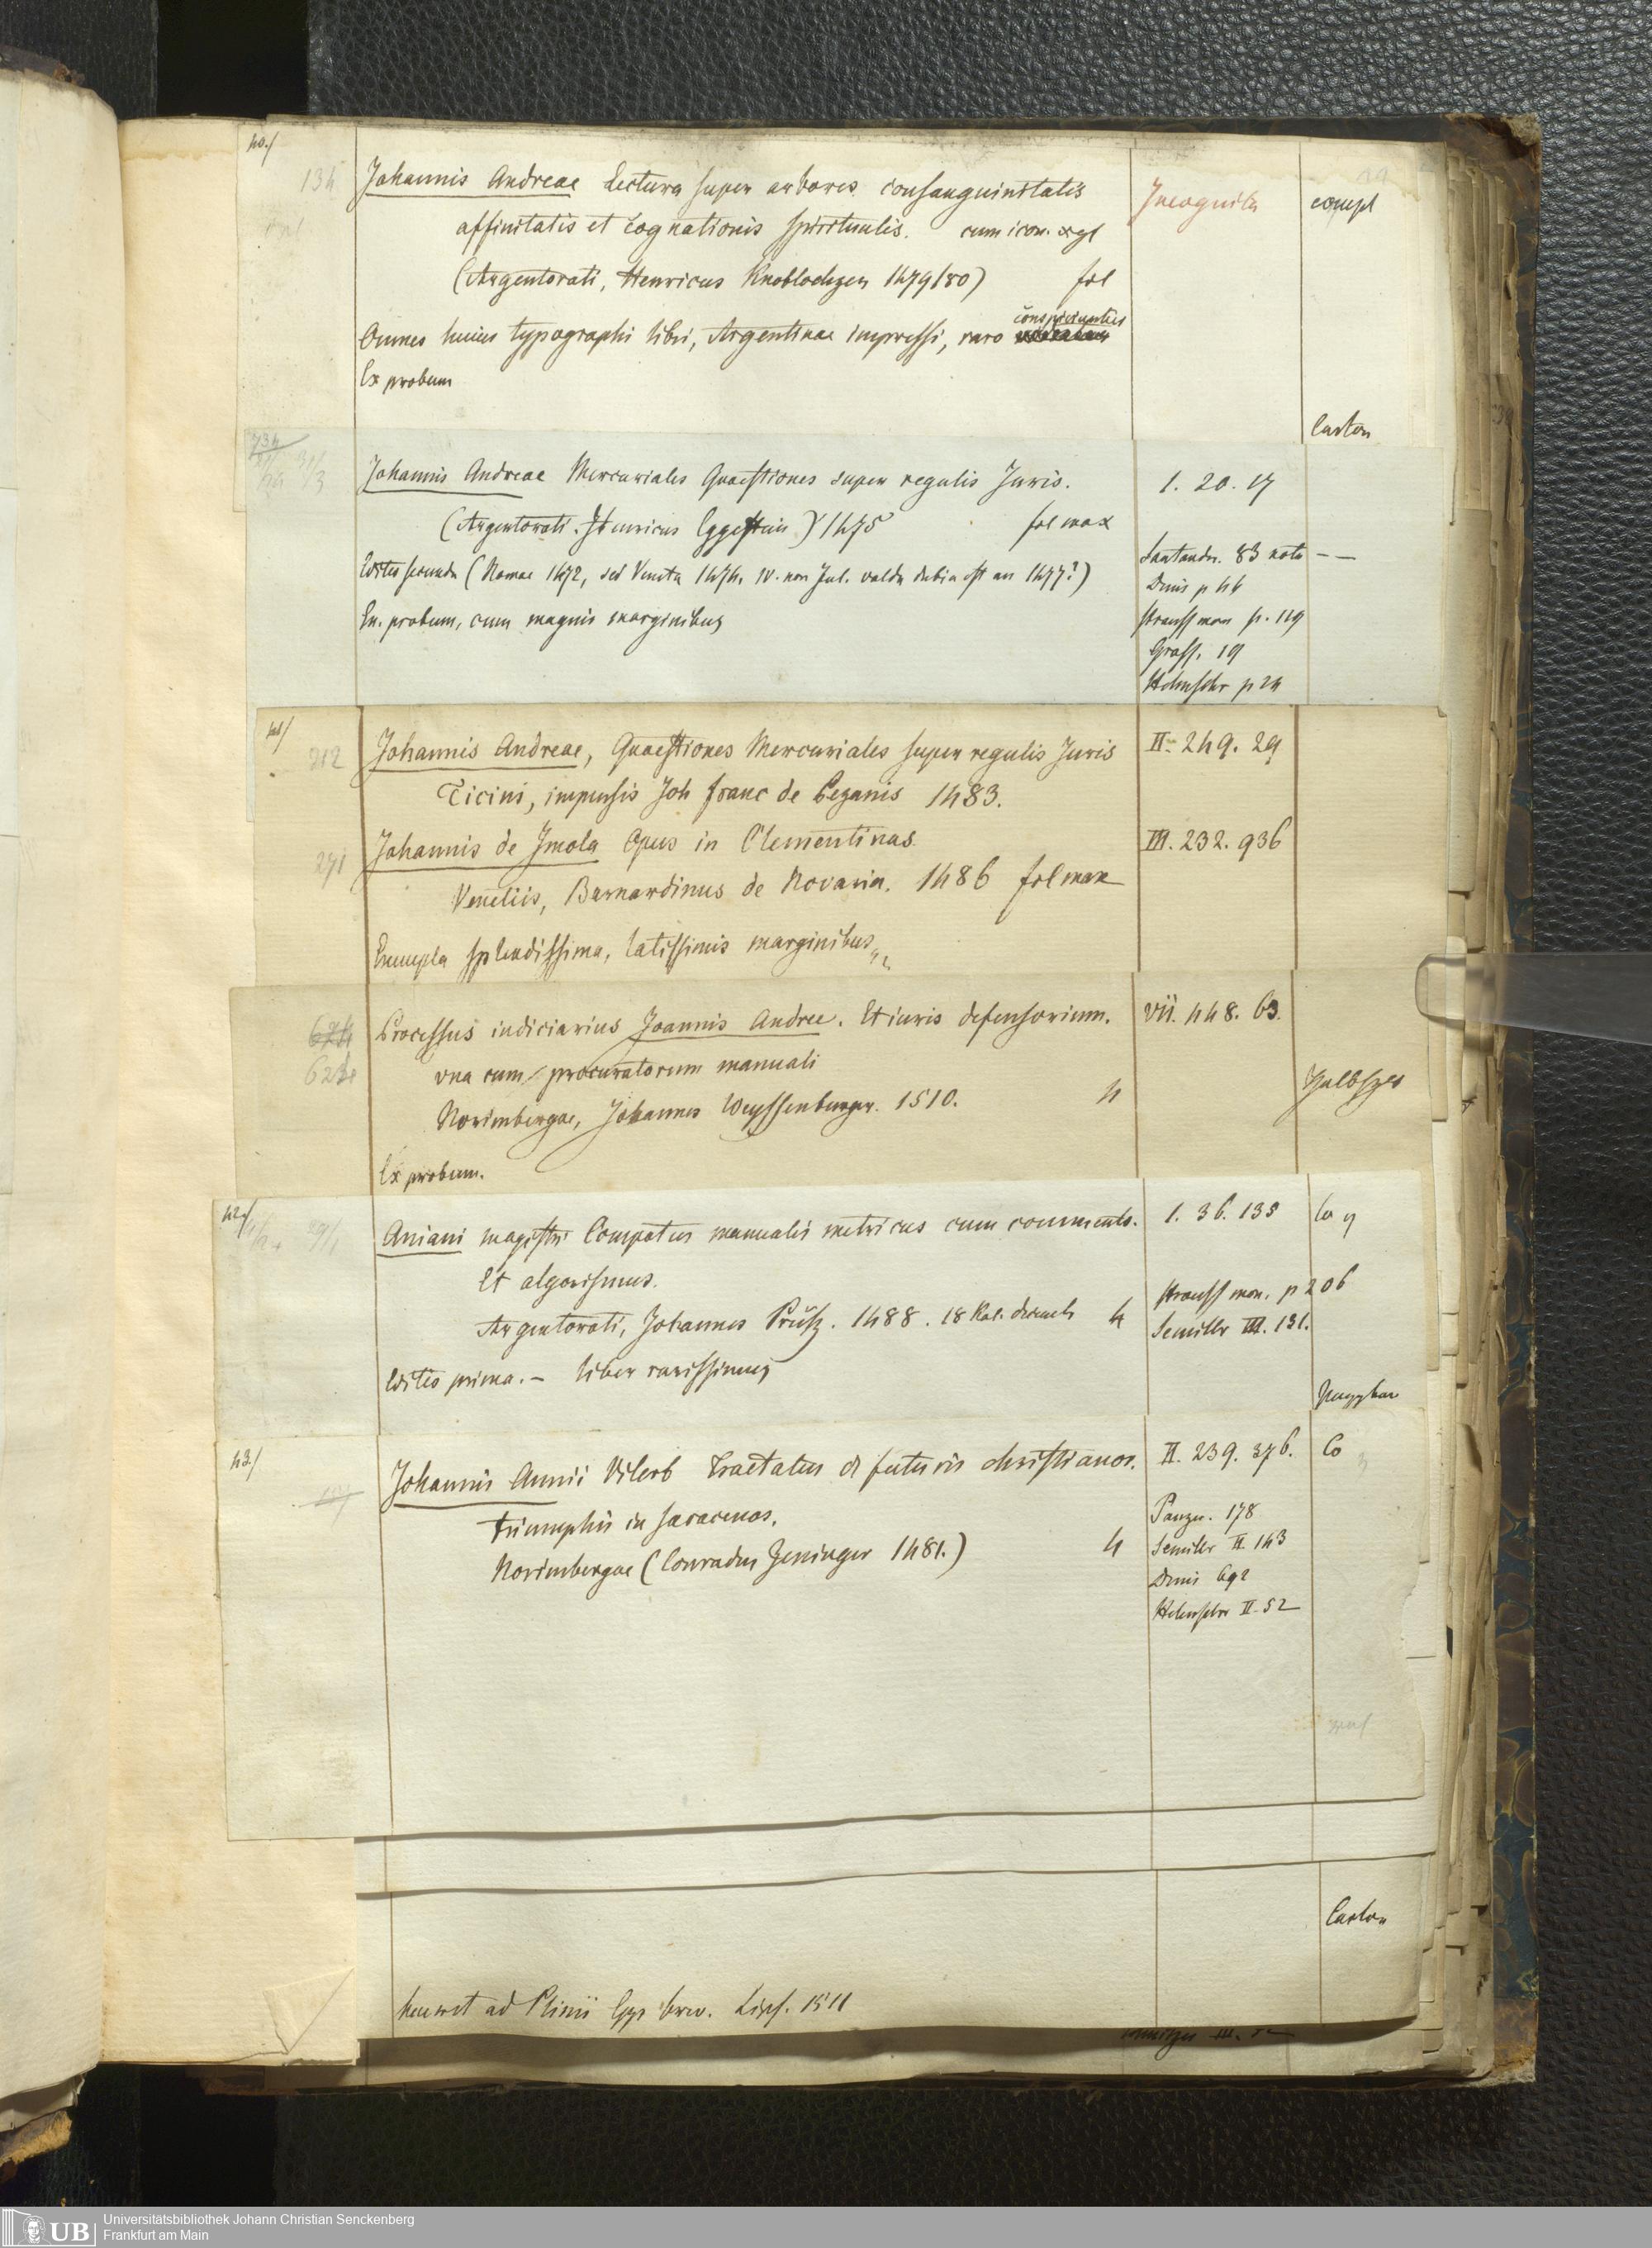 40./
134
Johannis Andreae Lectura super arbores consanguinitatis
Incognita
compl
affinitatis et Cognationis spiritualis. cum icon. xyl
(Argentorati, Henricus Knoblochzer 1479/80) fol
conspiciuntur
Omnes huius typographi libri, Argentinae impressi, raro
Ex probum
Carton
734
Johannis Andreae Mercuriales Quaestiones super regulis Juris.
1. 20. 17
(Argentorati. Henricus Eggestein) 1475 fol max
Editio secunda (Romae 1472, sed Veneta 1474, IV. non Jul. valde dubia est an 1477?)
Santander. 83 nota – –
Denis p 46
Ex. probum, cum magnis marginibus
Strauss mon p. 119
Grass. 19
Helmschr p 24
41/
212
Johannis Andreae, Quaestiones Mercuriales super regulis Juris
II. 249. 29
Ticini, impensis Joh franc de Pezanis 1483.
271
Johannis de Imola Opus in Clementinas.
III. 232. 936
Venetiis, Barnardinus de Novaria. 1486 fol max
Exempla splendissima, latissimis marginibus
624
Processus iudiciarius Joannis Andree. Et iuris defensorium.
VII. 448. 63.
una cum procuratorum manuali
Norimbergae, Johannes Weyssenburger. 1510. 4
Halbfrz
Ex probum.
42./
Aniani magistri Compotus manualis metricus cum commento.
1. 36. 135
Co 9
Et algorismus.
Strauss mon. p 206
Argentorati, Johannes Prüss. 1488. 18 Kal. 4
Semiller III. 131.
Editio prima. – liber rarissimus
43./
Johannis Annii Viterb tractatus de futuris christianor.
II. 239. 376.
Co
triumphis in saracenos.
Panzer. 178
Norimbergae (Conradus Zeninger 1481.) 4
Semiller II. 143
Denis 692
Helmschr II. 52
Carton
ad Plinii Lips. 1511
Universitätsbibliothek Johann Christian Senckenberg
Frankfurt am Main
UB